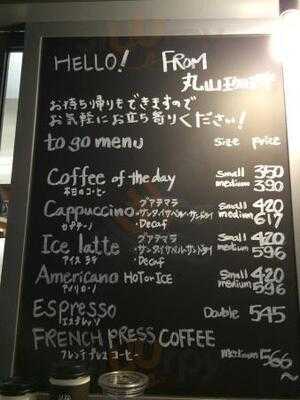 HELLO! FROM
丸山珈琲
お持ち帰りもできますので
お気軽にお立ち寄りください!
to go menu size price
Coffee of the day small 350
本日のコーヒー medium 390
Cappuccino グアテマラ small 420
カプチーノ ・サンタイサベル・サンドライ medium 617
・Decaf
Ice latte グアテマラ small 420
アイスラテ ・サンタイサベル・サンドライ medium 596
・Decaf
Americano HOT or ICE small 420
アメリカーノ medium 596
Espresso Double 545
エスプレッソ
FRENCH PRESS COFFEE
フレンチプレスコーヒー medium 566~